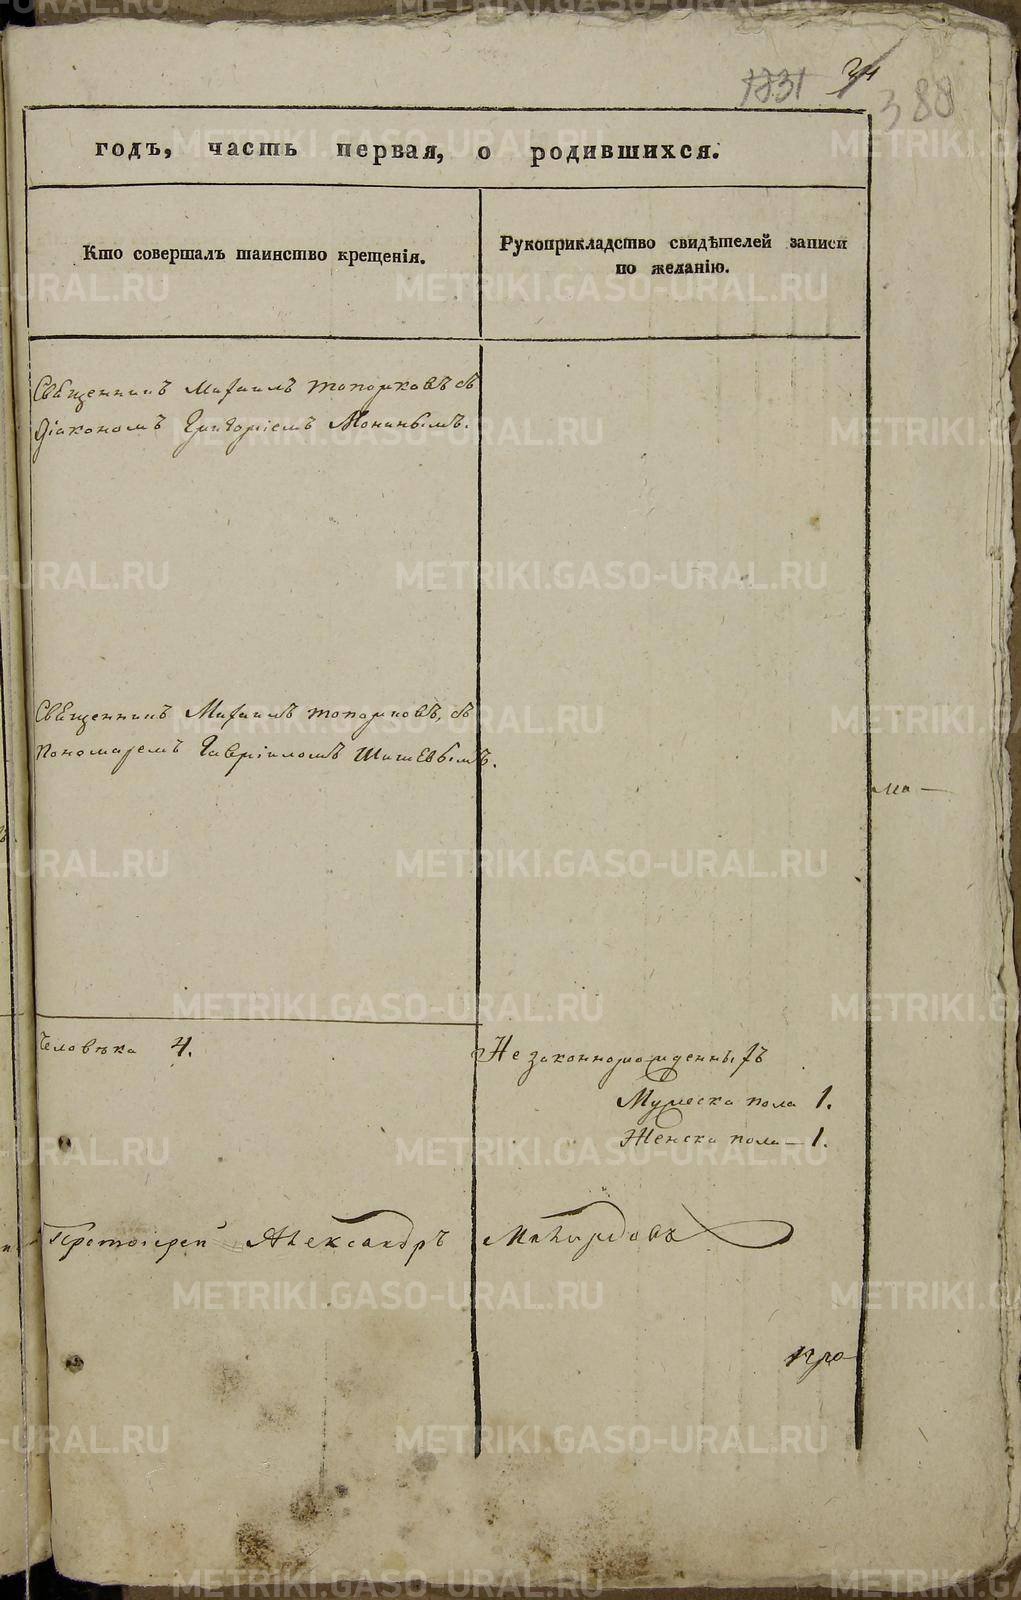 1831 34
388
годъ, часть первая, о родившихся.
Кто совершалъ таинство крещенія.
Рукоприкладство свидѣтелей записи
по желанію.
Священникъ Михаилъ Топорковъ съ
Діакономъ Григоріемъ Мониныمъ.
Священникъ Михаилъ Топорковъ, съ
Пономаремъ Гавріиломъ Шишевымъ.
Человѣка 4.
Незаконнорожденныхъ
Мужеска пола 1.
Женска пола — 1.
Протоіерей Александръ
METRIKI.GASO-URAL.RU